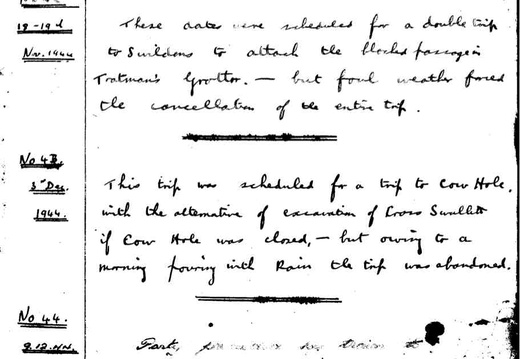 18-19th
Nov. 1944
These dates were scheduled for a double trip
to Swildons to attack the blocked passage in
Tratman's Grotto. — but foul weather forced
the cancellation of the entire trip.
No 4B
3rd Dec.
1944.
This trip was scheduled for a trip to Cow Hole,
with the alternative of excavation of Cross Swallet
if Cow Hole was closed, — but owing to a
morning pouring with Rain the trip was abandoned.
No 44.
Party